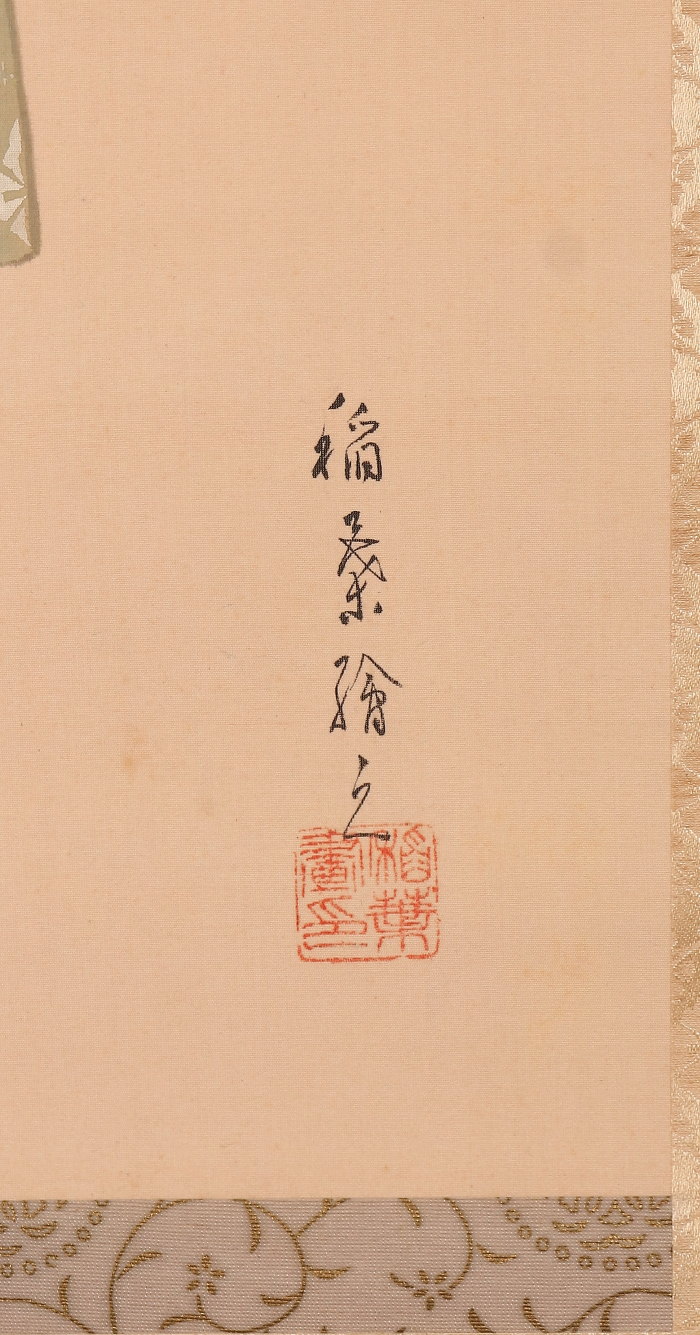 稲葉繪之
稲葉
畫印